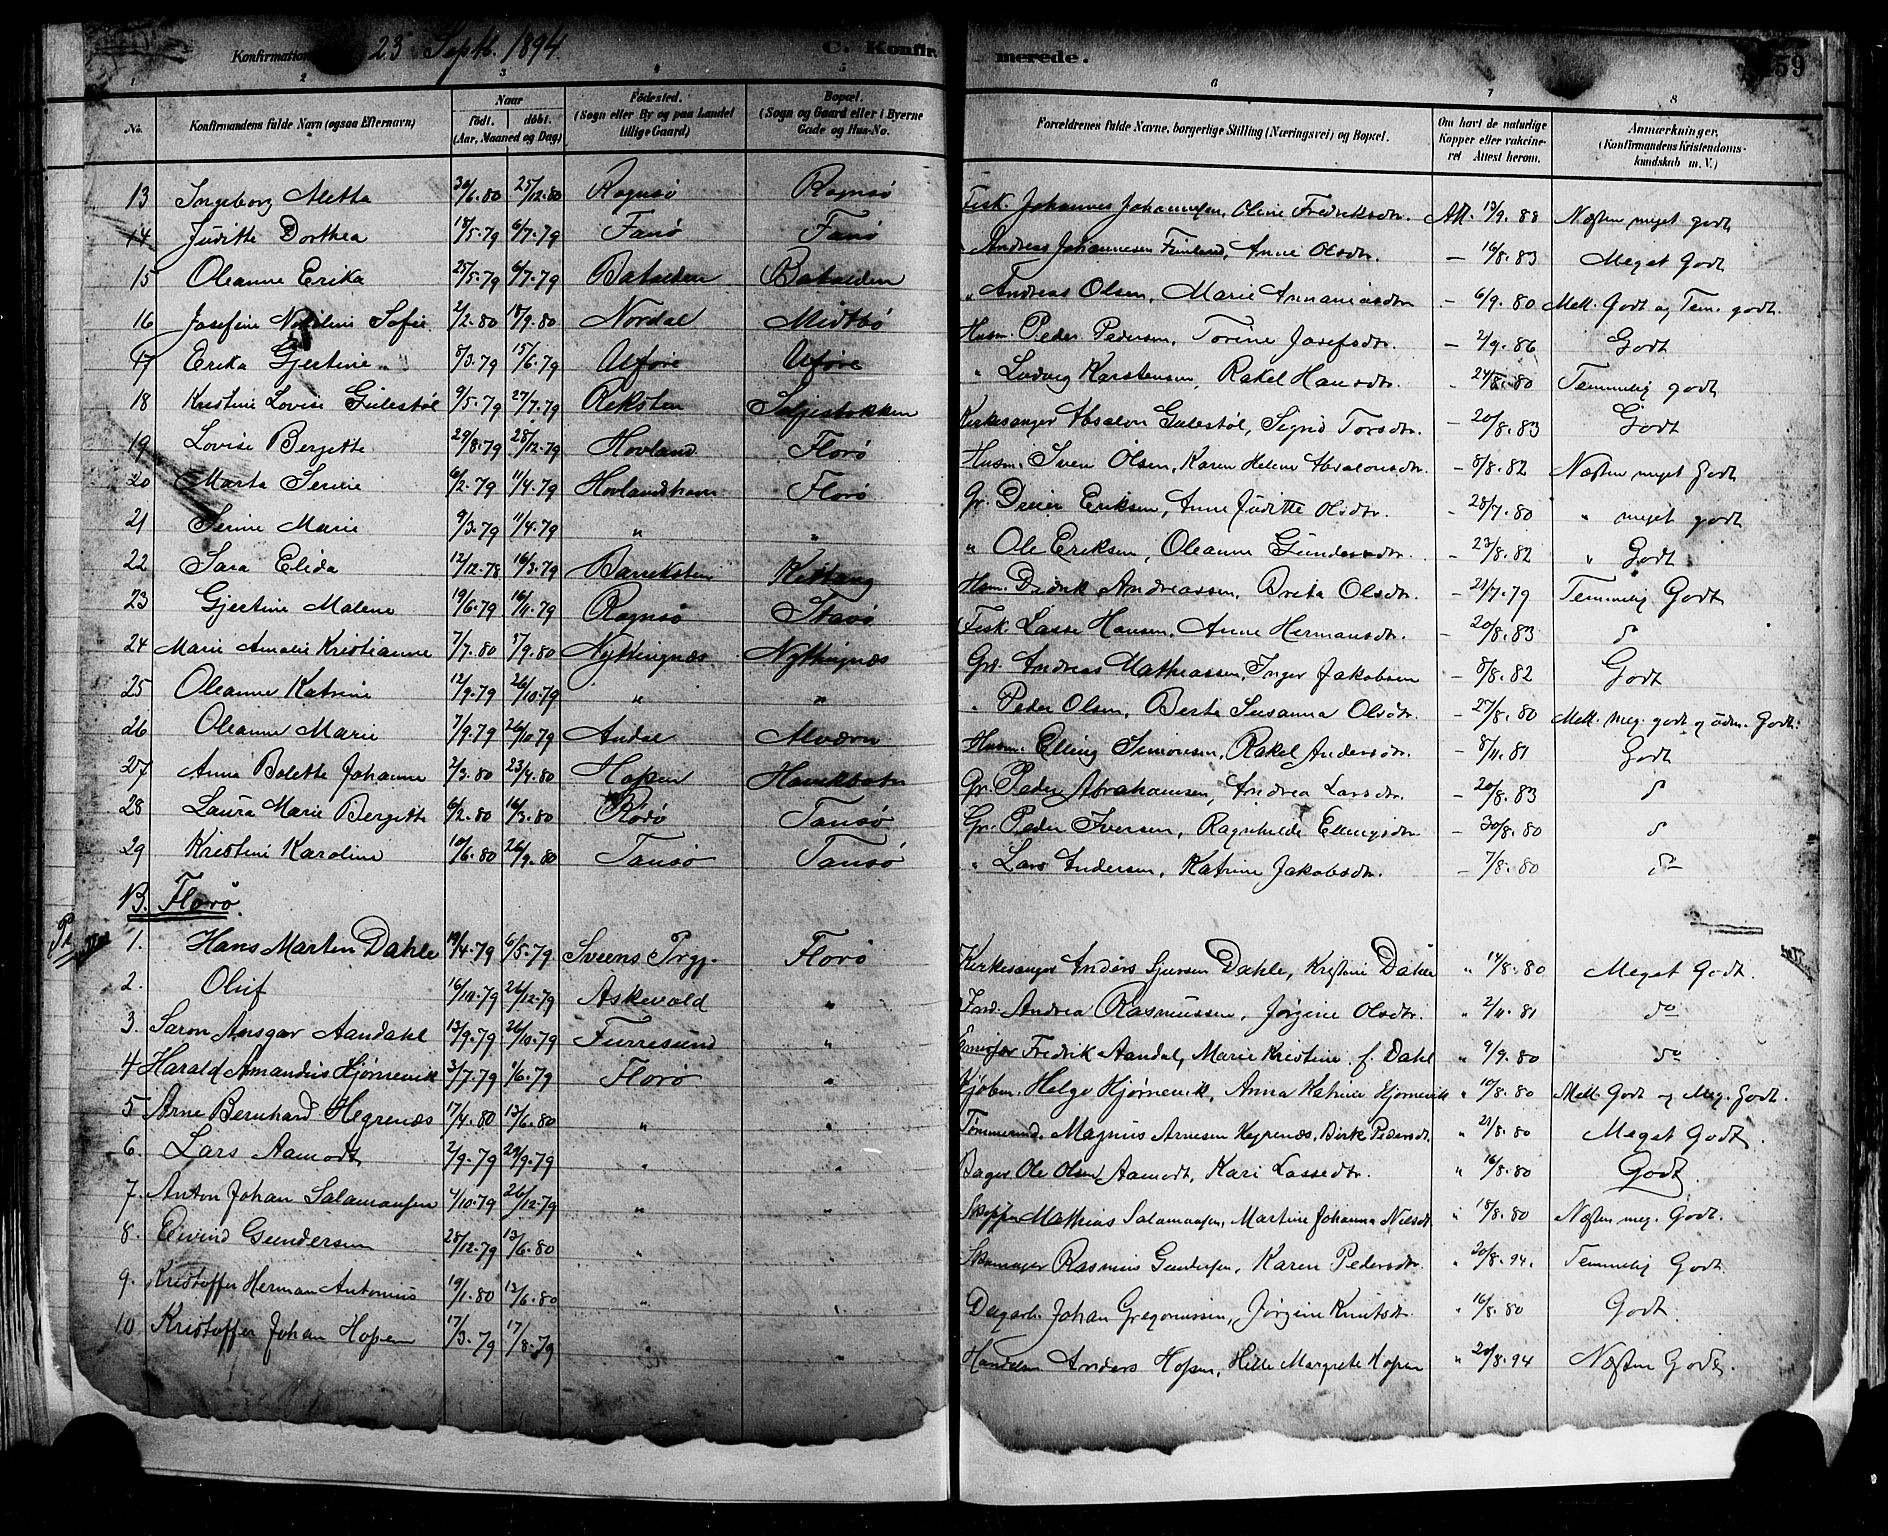 Konfirmation 23 Septb. 1894. C. Konfir- merede. 59
1 2 3 4 5 6 7 8
No. Konfirmandens fulde Navn (ogsaa Efternavn) Naar født. døbt. (Aar, Maaned og Dag) Fødested. (Sogn eller By og paa Landet tillige Gaard) Bopæl. (Sogn og Gaard eller i Byerne Gade og Hus-No. Forældrenes fulde Navne, borgerlige Stilling (Næringsvei) og Bopæl. Om havt de naturlige Kopper eller vakcineret Attest herom. Anmærkninger. (Konfirmandens Kristendomskundskab m. V.)
13 Ingeborg Aletta 30/6.80 25/12.80 Rognsø Rognsø Fisk. Johannes Johannesen, Oline Fredriksdtr. Att. 13/9.88 Næsten meget godt
14 Juditte Dorthea 18/5.79 6/7.79 Fanø Fanø " Andreas Johannesen Finland, Anne Olsdtr. — 16/8.83 Meget Godt
15 Oleanne Erika 25/5.79 6/7.79 Batalden Batalden " Andreas Olsen, Marie Annaniasdtr — 6/9.80 Mell. Godt og Tem. godt.
16 Josefine Nikoline Sofie 2/2.80 18/9.80 Nordal Midtbø Husm. Peder Pedersen, Torine Josefsdtr. — 2/9.86 Godt
17 Erika Gjertine 8/3.79 15/6.79 Ulføre Ulføre " Ludvig Karstensen, Rakel Hansdtr. — 24/8.80 Temmelig godt
18 Kristine Lovise Gulestøl 9/5.79 27/7.79 Reksten Seljestokken Kirkesanger Absalon Gulestøl, Sigrid Torsdtr. — 20/8.83 Godt
19 Lovise Bergette 29/8.79 28/12.79 Hovland Florø Husm. Sven Olsen, Karen Helene Absalonsdtr. — 8/8.82 Næsten meget Godt
20 Marta Serine 6/2.79 11/4.79 Hovlandhavn Florø Gr. Dreier Eriksen, Anne Juditte Olsdtr. - 28/7.80 " meget godt
21 Serine Marie 9/3.79 11/4.79 " " " Ole Eriksen, Oleanne Gundersdtr. - 23/8.82 " Godt
22 Sara Elida 12/12.78 16/3.79 Barreksten Kittang Husm. Didrik Andreassen, Brita Olsdtr. - 21/7.79 Temmelig Godt
23 Gjertine Malene 19/6.79 16/11.79 Rognsø Stavø Fisk. Lasse Hansen, Anne Hermansdtr. - 20/8.83 do
24 Marie Amalie Kristianne 7/7.80 5/9.80 Nyttingnæs Nyttingnæs Gr. Andreas Mathiassen, Inger Jakobsen — 8/8.82 Godt
25 Oleanne Katrine 12/9.79 26/10.79 " " " Peder Olsen, Berte Susanna Olsdtr. - 27/8.80 Mell. meg. godt og Godt.
26 Oleanne Marie 7/9.79 26/10.79 Andal Alværn Husm. Elling Simonsen, Rakel Andersdtr. - 8/11.81 Godt
27 Anna Bolette Johanne 2/3.80 23/4.80 Hopen Havikbotn Gr. Peder Abrahamsen, Andrea Larsdtr. - 20/8.83 do
28 Laura Marie Bergitte 6/2.80 16/3.80 Florø Tansø Gr. Peder Iversen, Ragnhilde Ellingsdtr - 30/8.80 do
29 Kristine Karoline 10/6.80 26/9.80 Tansø Tansø " Lars Andersen, Katrine Jakobsdtr. - 7/8.80 do
B. Florø.
1. Hans Martin Dahle 19/4.79 6/5.79 Sveens Prgj. Florø Kirkesanger Anders Sjursen Dahle, Kristine Dahle " 14/8.80 Meget Godt.
2. Oluf 16/10.79 26/12.79 Askevold " Andrea Rasmussen, Jørgine Olsdtr. " 2/11.81 do
3. Saron Ansgar Aandahl 13/9.79 26/10.79 Furresund " Fredrik Aandal, Marie Kristine, f. Dahl " 9/9.80 do
4 Harald Amandus Hjørnevik 3/7.79 1/6.79 Florø " Kjøbm. Helge Hjørnevik, Anna Katrine Hjørnevik " 10/8.80 Mell. Godt og Meg. Godt.
5 Arne Bernhard Hegrenæs 17/4.80 13/6.80 " " Tømmermd. Magnus Arnesen Hegrenæs, Birte Pedersdtr. " 21/8.80 Meget Godt.
6. Lars Aamodt 2/9.79 29/9.79 " " Bager Ole Olsen Aamodt, Kari Lassedtr. " 16/8.80 Godt.
7. Anton Johan Salamansen 4/10.79 26/12.79 " " Skipper Mathias Salamansen, Martine Johanna Nilsdt " 18/8.80 Næsten meg. Godt.
8. Eivind Gundersen 28/12.79 13/6.80 " " Skomager Rasmus Gundersen, Karen Pedersdtr. " 20/8.94. Temmelig Godt.
9. Kristoffer Herman Antonius 19/1.80 13/6.80 " " Dagarb. Johan Gregoriussen, Jørgine Knutsdtr " 16/8.80 Godt.
10 Kristoffer Johan Hopen 17/3.79 17/8.79 " " Handelsm Anders Hopen, Helle Margrete Hopen " 20/8.94 Næsten Godt.